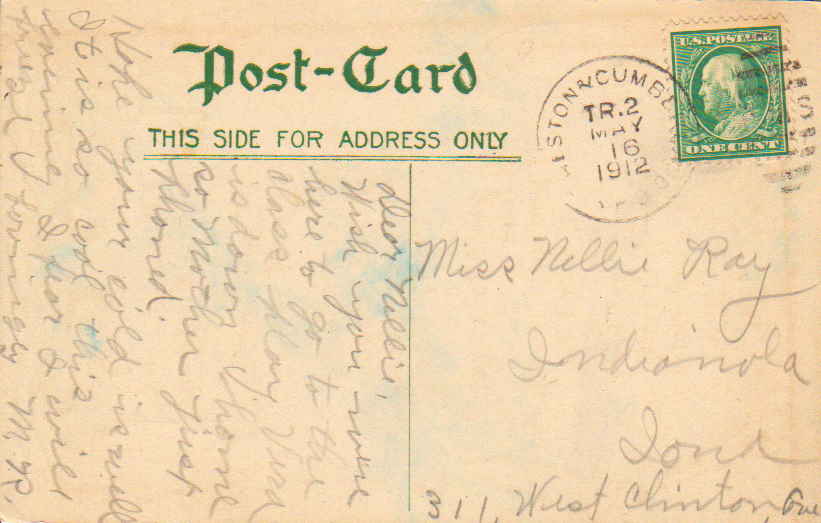 Post-Card
THIS SIDE FOR ADDRESS ONLY
TR.2
MAY
16
1912
U.S. POSTAGE
ONE CENT
Dear Nellie,
Wish you were
here to go to the
class play
is down home
so Mother just
phoned.
Hope your cold is well
It is so cool this
evening I fear I will
Lovingly M. R.
Miss Nellie Ray
Indianola
Iowa
311, West Clinton, Ave